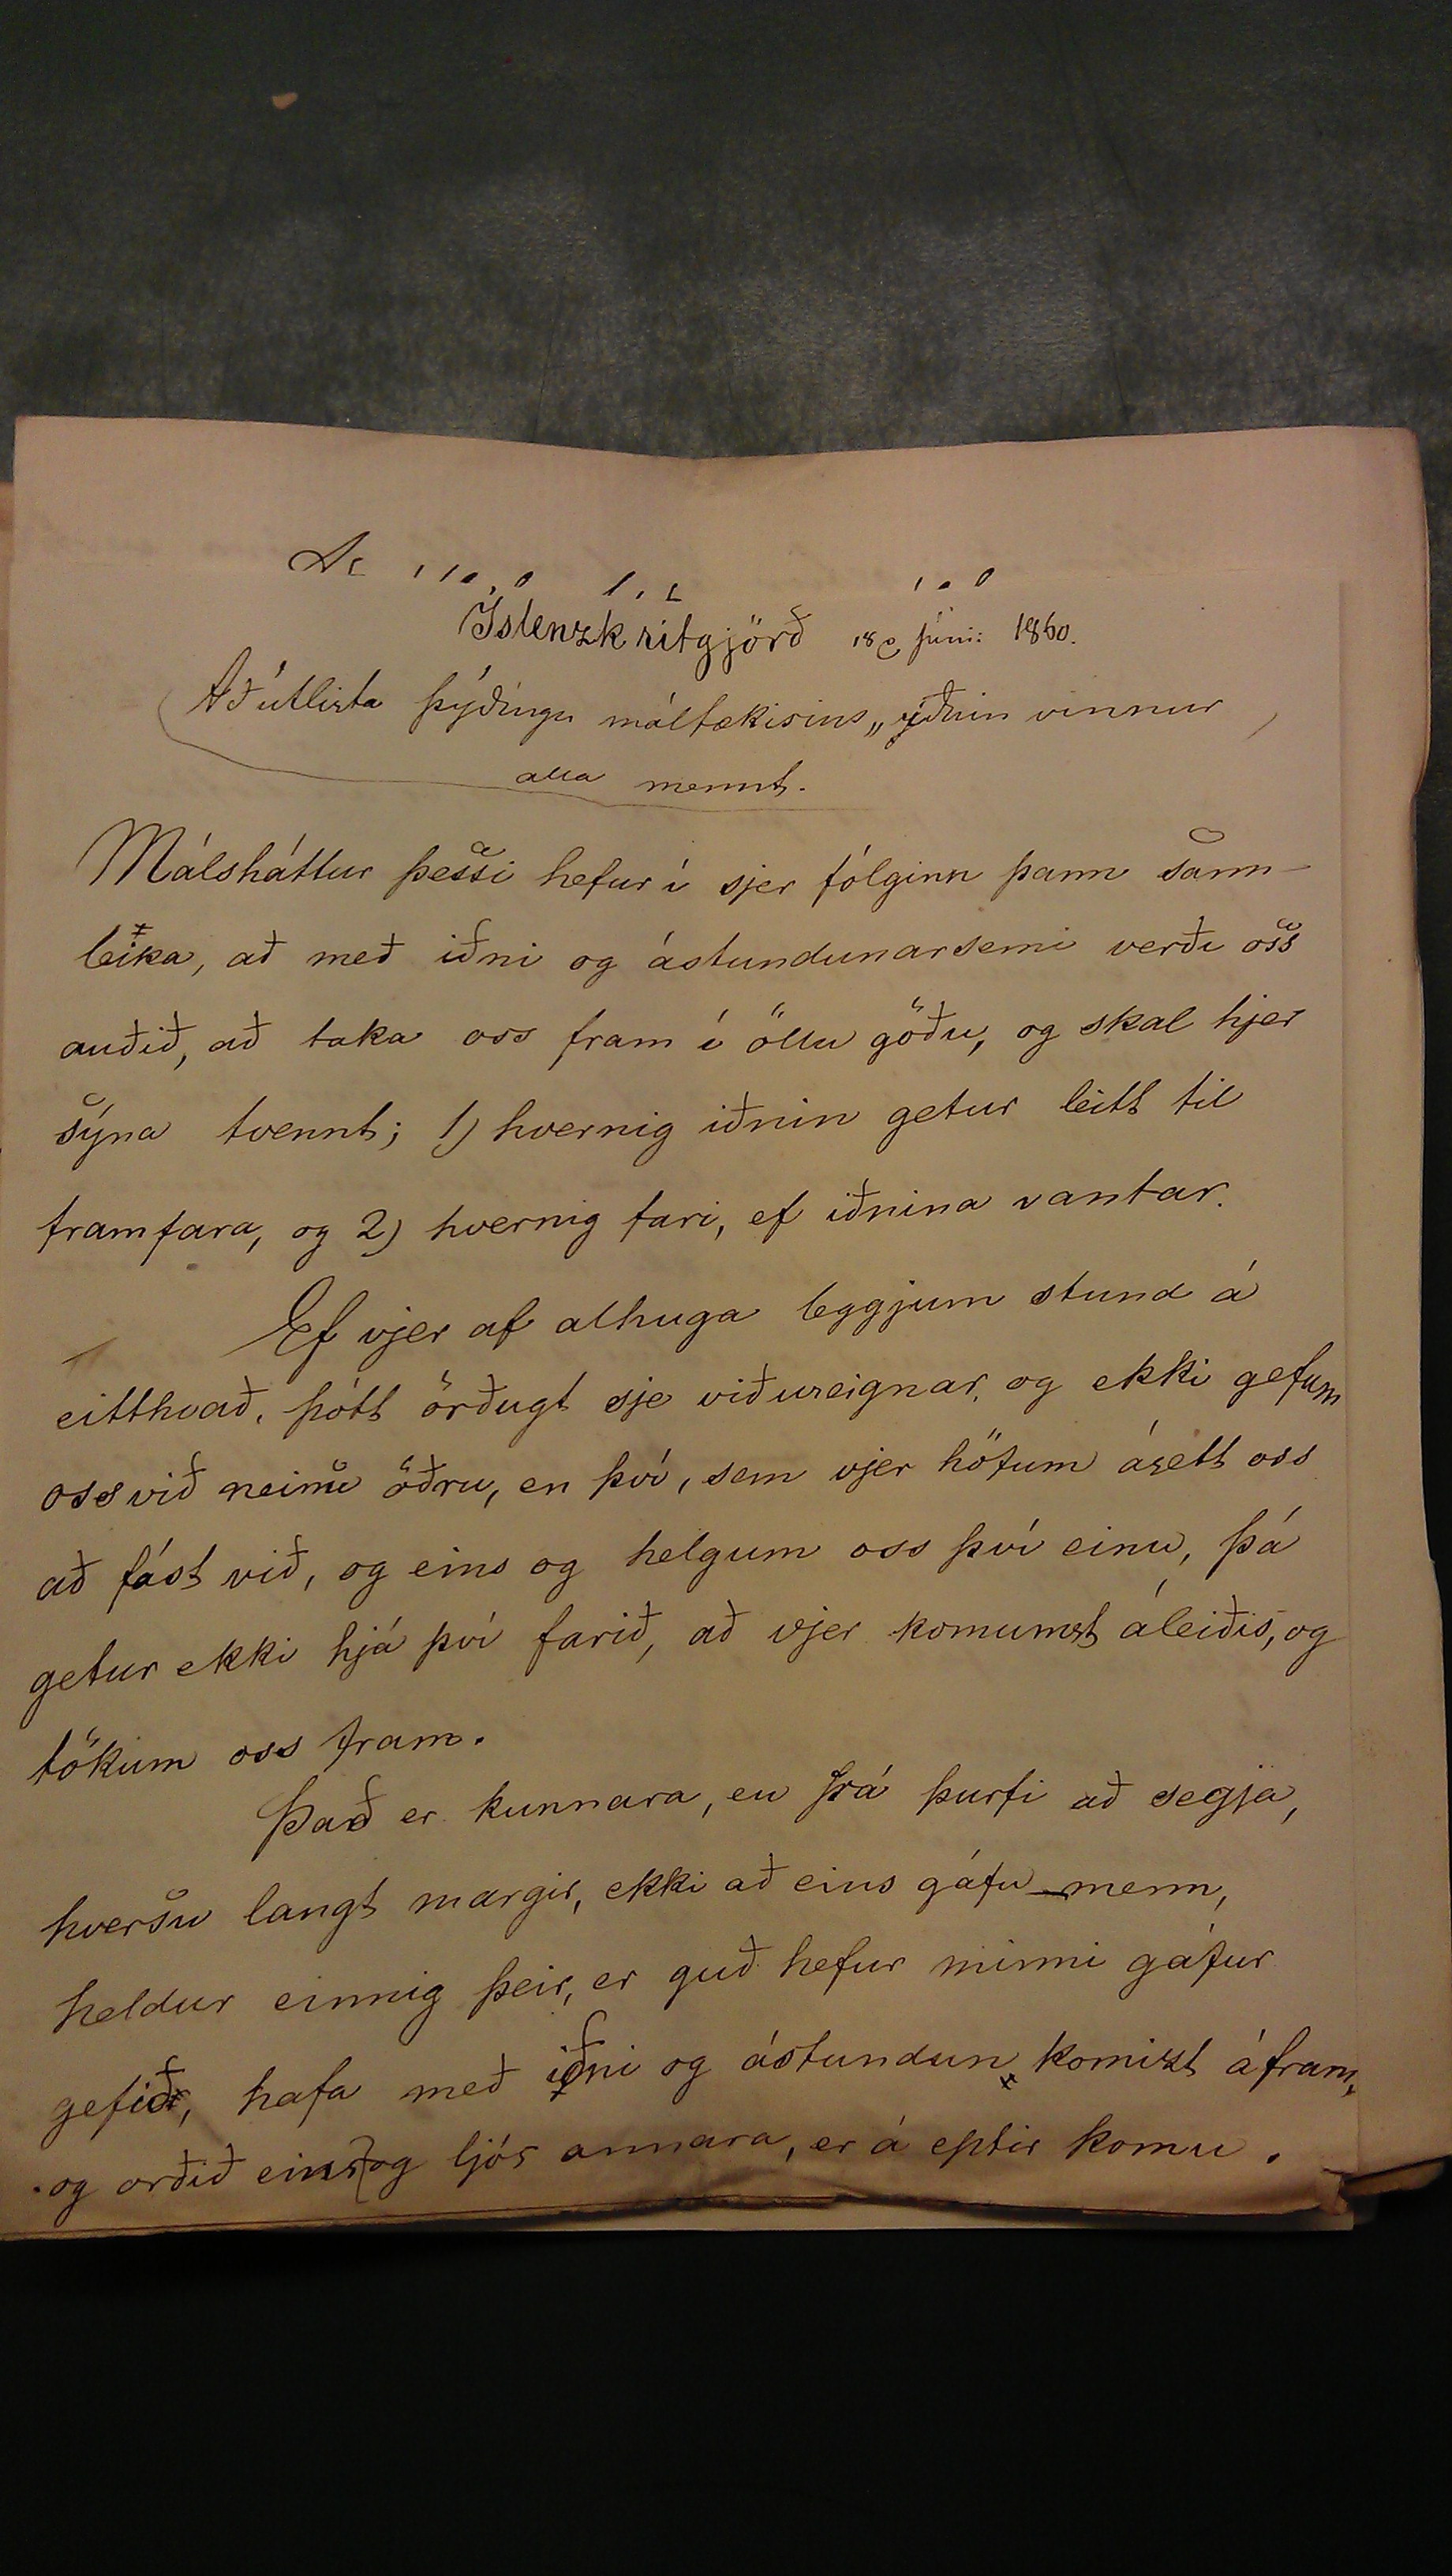 Íslenzk ritgjörð 18 Júni: 1860.
Að útlista þýðingu máltækisins „iðnin vinnur
alla mennt.
Málsháttur þessi hefur í sjer fólginn þann sann-
leika, að með iðni og ástundunarsemi verði oss
auðið, að taka oss fram í öllu góðu, og skal hjer
sýna tvennt; 1) hvernig iðnin getur leitt til
framfara, og 2) hvernig fari, ef iðnina vantar.
Ef vjer af alhuga leggjum stund á
eitthvað, þótt örðugt sje viðureignar, og ekki gefum
oss við neinu öðru, en því, sem vjer höfum ásett oss
að fást við, og eins og helgum oss því einu, þá
getur ekki hjá því farið, að vjer komumst áleiðis, og
tökum oss fram.
Það er kunnara, en frá þurfi að segja,
hversu langt margir, ekki að eins gáfu-menn,
heldur einnig þeir, er guð hefur minni gáfur
gefið, hafa með iðni og ástundun komizt áfram,
og orðið eins og ljós annara, er á eptir komu.